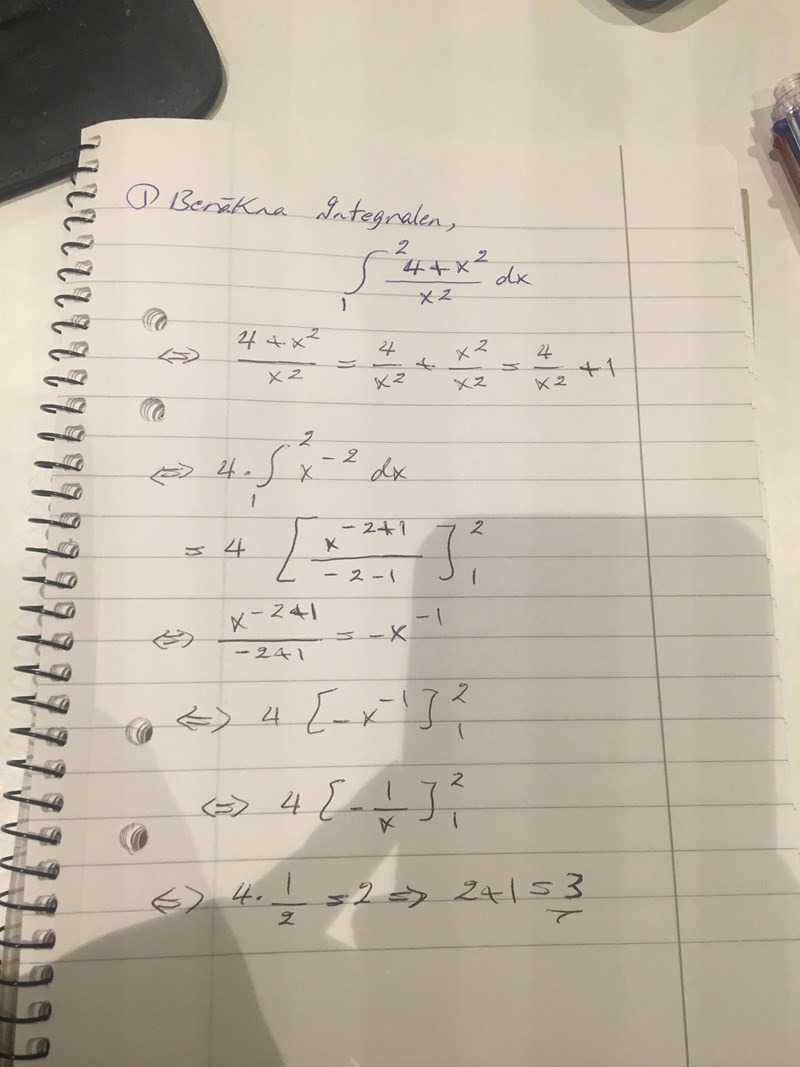 ① Beräkna Integralen,
∫₁² (4+x²)/x² dx
⇔ (4+x²)/x² = 4/x² + x²/x² = 4/x² + 1
⇔ 4·∫₁² x⁻² dx
= 4 [x⁻²⁺¹/(-2-1)]₁²
⇔ x⁻²⁺¹/(-2+1) = -x⁻¹
⇔ 4 [-x⁻¹]₁²
⇔ 4 [-1/x]₁²
⇔ 4·1/2 = 2 ⇒ 2+1 = 3